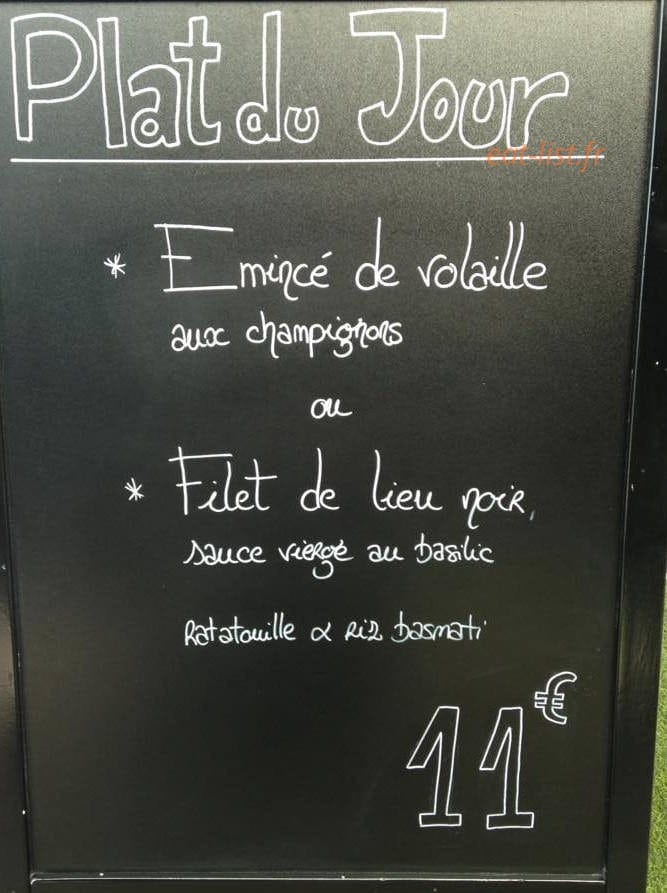 Plat du Jour
eat-list.fr
* Emincé de volaille
aux champignons
ou
* Filet de lieu noir,
sauce vierge au basilic
Ratatouille & riz basmati
11€